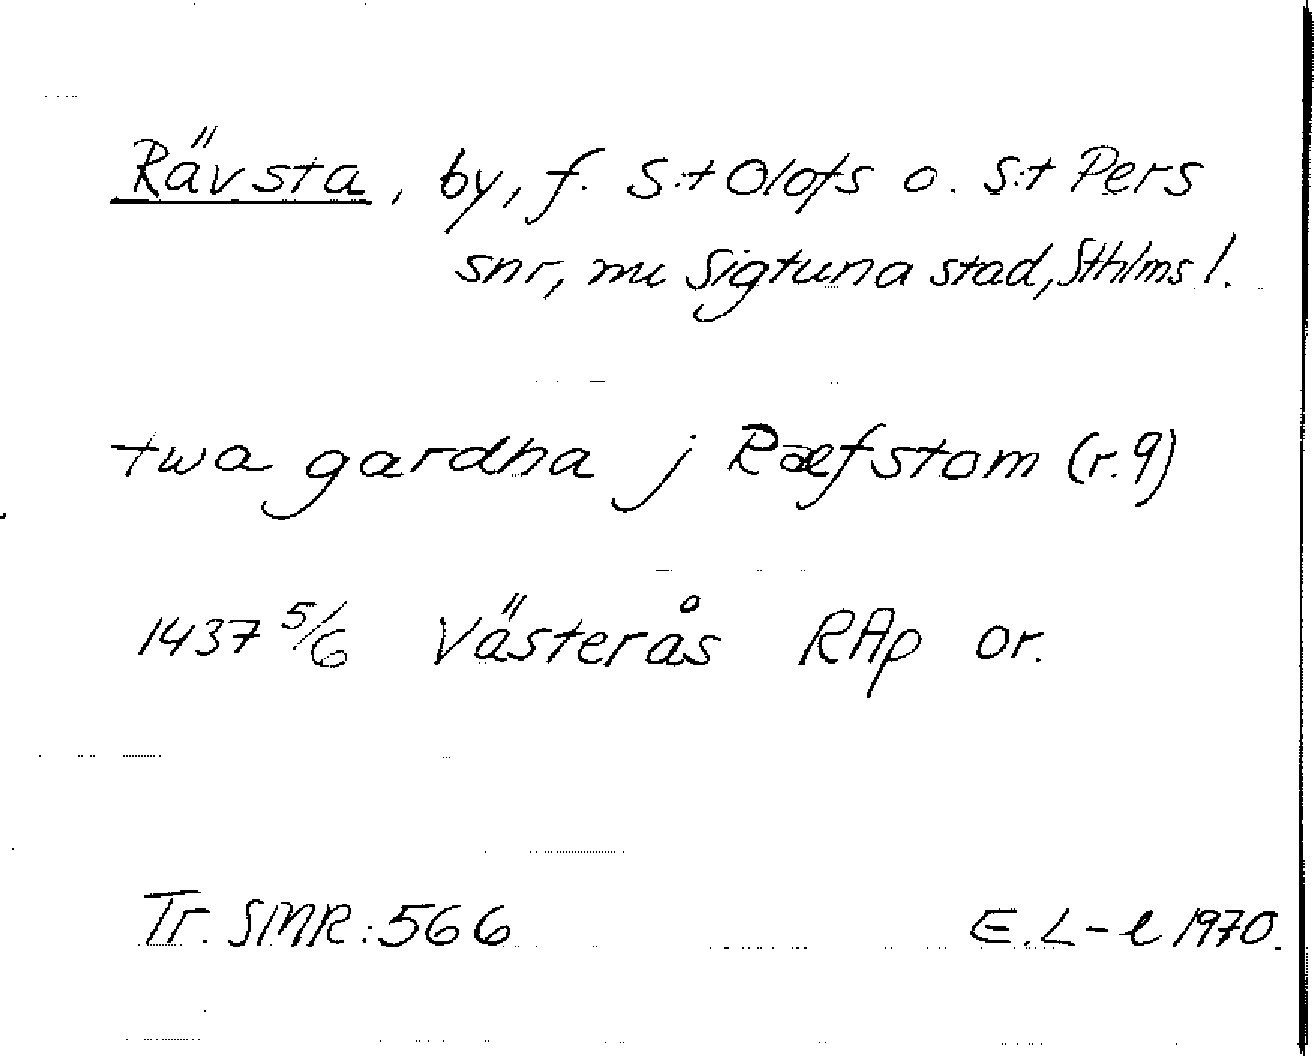 Rävsta, by, f. S:t Olofs o. S:t Pers
snr, nu Sigtuna stad, Sthlms l.
twa gardha j Ræfstom (r.9)
1437 5/6 Västerås RAp or.
Tr. SMR: 566 E.L-l 1970.